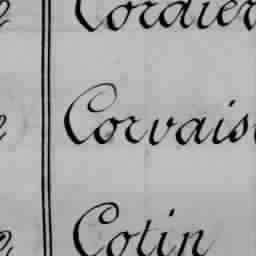 Cordier
Corvais
Cotin